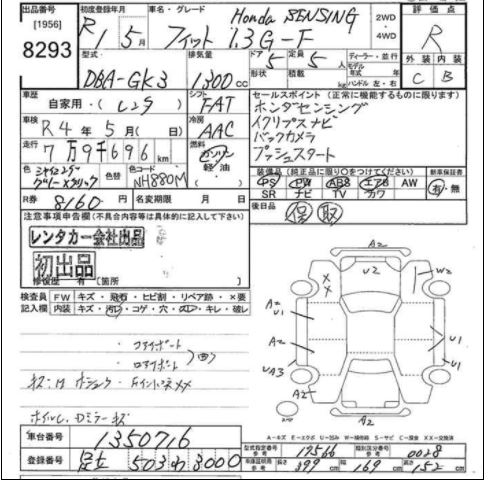 出品番号 [1956] 8293
初度登録年月 R1 5月
車名・グレード Honda SENSING フィット 1.3G-F
2WD ・ 4WD
評価点 R
外装 内装 C B
型式 DBA-GK3
排気量 1300cc
ドア 5
定員 5人
形状
積載 kg
ディーラー・並行
モデル年式 年
ハンドル 左・右
車歴 自家用・(レンタ)
シフト FAT
セールスポイント (正常に機能するものに限ります)
ホンダセンシング
イクリプスナビ
バックカメラ
プッシュスタート
車検 R4年5月( 日)
冷房 AAC
走行 7万9千696km
燃料 ガソリン 軽油
色 シャイニンググレーメタリック
色替
色コード NH880M
装備品 (純正品に限り○をつけてください)
PS PW ABS エアB AW
SR ナビ TV カワ
新車保証書 有・無
R券 8160円
名変期限 月 日
後日品 保 取
注意事項申告欄(不具合内容等は具体的に記入して下さい)
レンタカー会社出品
初出品
修復歴 有 [箇所 ]
検査員記入欄
FW キズ・飛石・ヒビ割・リペア跡・×要
内装 キズ・汚レ・コゲ・穴・スレ・キレ・破レ
ホイルC,Dミラーキズ
車台番号 1350716
登録番号 足立 503 わ 3000
A2
U2
W2
XX
A2
U1
A2
UA3
A2
U1
U1
A2
A-キズ E-エクボ U-凹み W-補修跡 S-サビ C-腐食 XX-交換済
型式指定番号 参考 17566
類別区分番号 参考 0028
車庫証明用 参考 長さ 399 幅 169 高さ 152